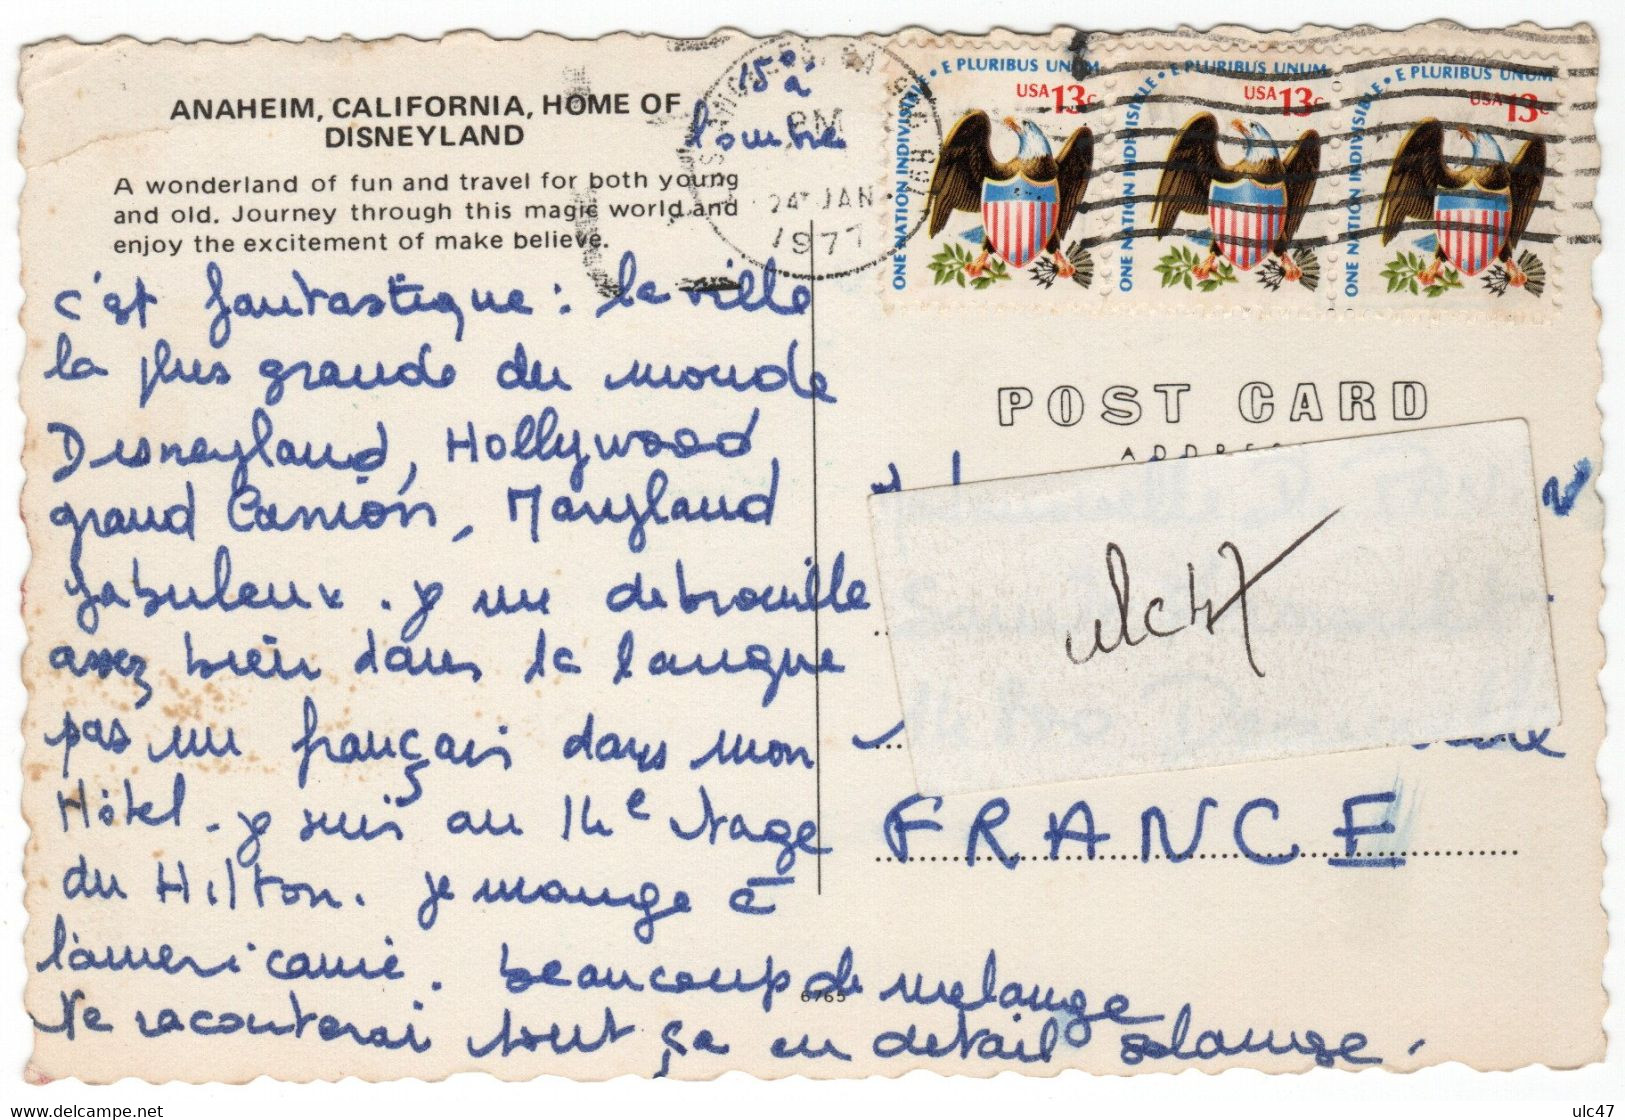 ANAHEIM, CALIFORNIA, HOME OF
DISNEYLAND
A wonderland of fun and travel for both young
and old. Journey through this magic world and
enjoy the excitement of make believe.
15° à
l'ombre
c'est fantastique : la ville
la plus grande du monde
Disneyland, Hollywood,
grand Canion, Maryland
fabuleux. je me debrouille
assez bien dans la langue
pas un français dans mon
Hôtel. je suis au 14e etage
du Hilton. je mange à
l'americaine. beaucoup de melange
te raconterai tout ça en detail
6765
PM
24 JAN
1977
ONE NATION INDIVISIBLE • E PLURIBUS UNUM
USA 13c
ONE NATION INDIVISIBLE • E PLURIBUS UNUM
USA 13c
ONE NATION INDIVISIBLE • E PLURIBUS UNUM
USA 13c
POST CARD
ADDRESS
ulc47
FRANCE
www.delcampe.net
ulc47